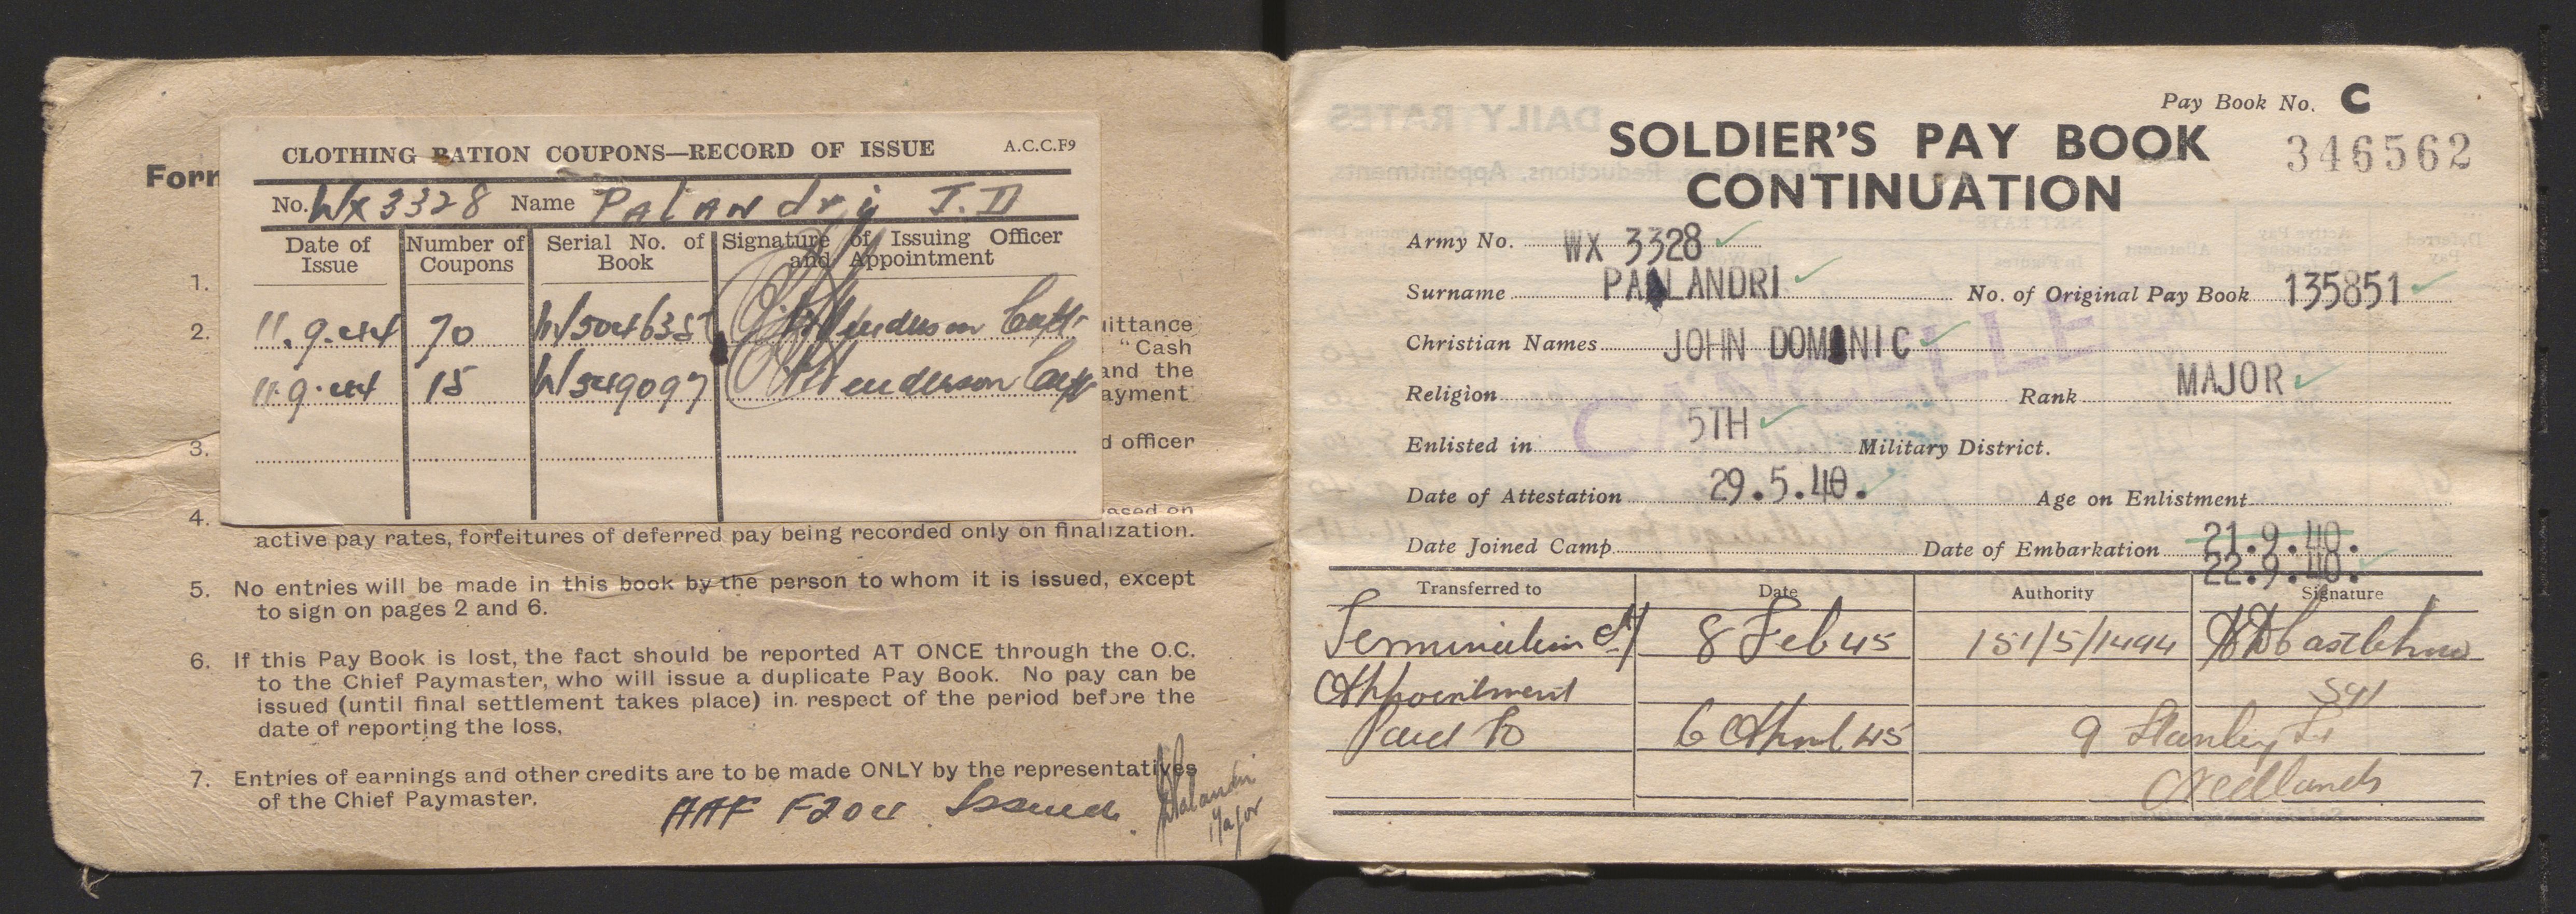 Form
CLOTHING RATION COUPONS—RECORD OF ISSUE A.C.C.F9
No. WX3328 Name PALANdri J.D
Date of Issue Number of Coupons Serial No. of Book Signature of Issuing Officer and Appointment
11.9.44 70 Henderson Capt
11.9.44 15 W549097 Henderson Capt
1.
2.
ittance
"Cash
and the
ayment
3. d officer
4. ased on
active pay rates, forfeitures of deferred pay being recorded only on finalization.
5. No entries will be made in this book by the person to whom it is issued, except
to sign on pages 2 and 6.
6. If this Pay Book is lost, the fact should be reported AT ONCE through the O.C.
to the Chief Paymaster, who will issue a duplicate Pay Book. No pay can be
issued (until final settlement takes place) in respect of the period before the
date of reporting the loss.
7. Entries of earnings and other credits are to be made ONLY by the representatives
of the Chief Paymaster.
AAF F204 Issued.
JDPalandri
Major
Pay Book No. C
346562
SOLDIER'S PAY BOOK
CONTINUATION
Army No. WX 3328
Surname PALANDRI No. of Original Pay Book 135851
Christian Names JOHN DOMINIC
CANCELLED
Religion Rank MAJOR
Enlisted in 5TH Military District.
Date of Attestation 29.5.40. Age on Enlistment
Date Joined Camp Date of Embarkation 21.9.40.
22.9.40.
Transferred to Date Authority Signature
Termination of 8 Feb 45 151/5/1494
Appointment Sgt
Paid to 6 April 45 9 Stanley St
Nedlands